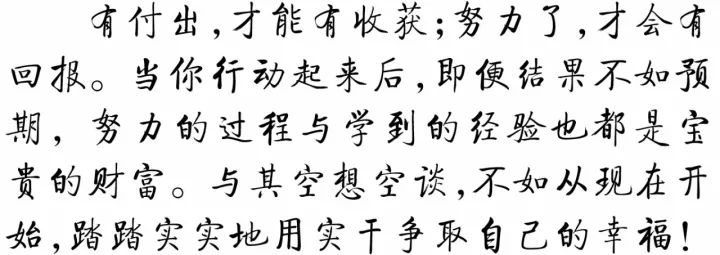 有付出,才能有收获;努力了,才会有
回报。当你行动起来后,即便结果不如预
期，努力的过程与学到的经验也都是宝
贵的财富。与其空想空谈,不如从现在开
始,踏踏实实地用实干争取自己的幸福!